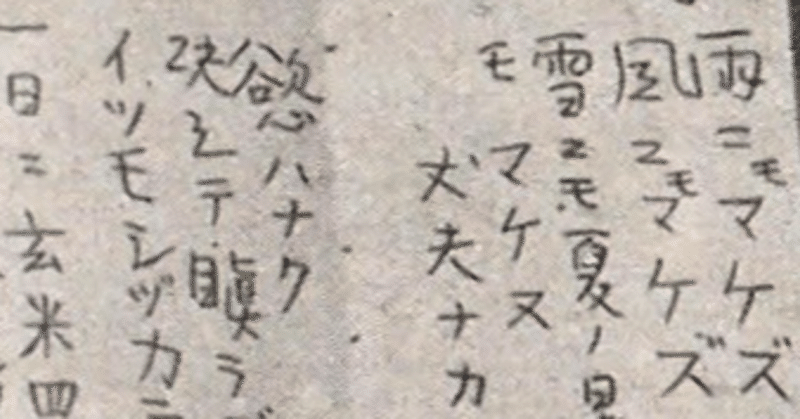 雨ニモマケズ
風ニモマケズ
雪ニモ夏ノ暑
モマケヌ
丈夫ナカ
慾ハナク
決シテ瞋ラ
イツモシヅカニ
一日ニ玄米四